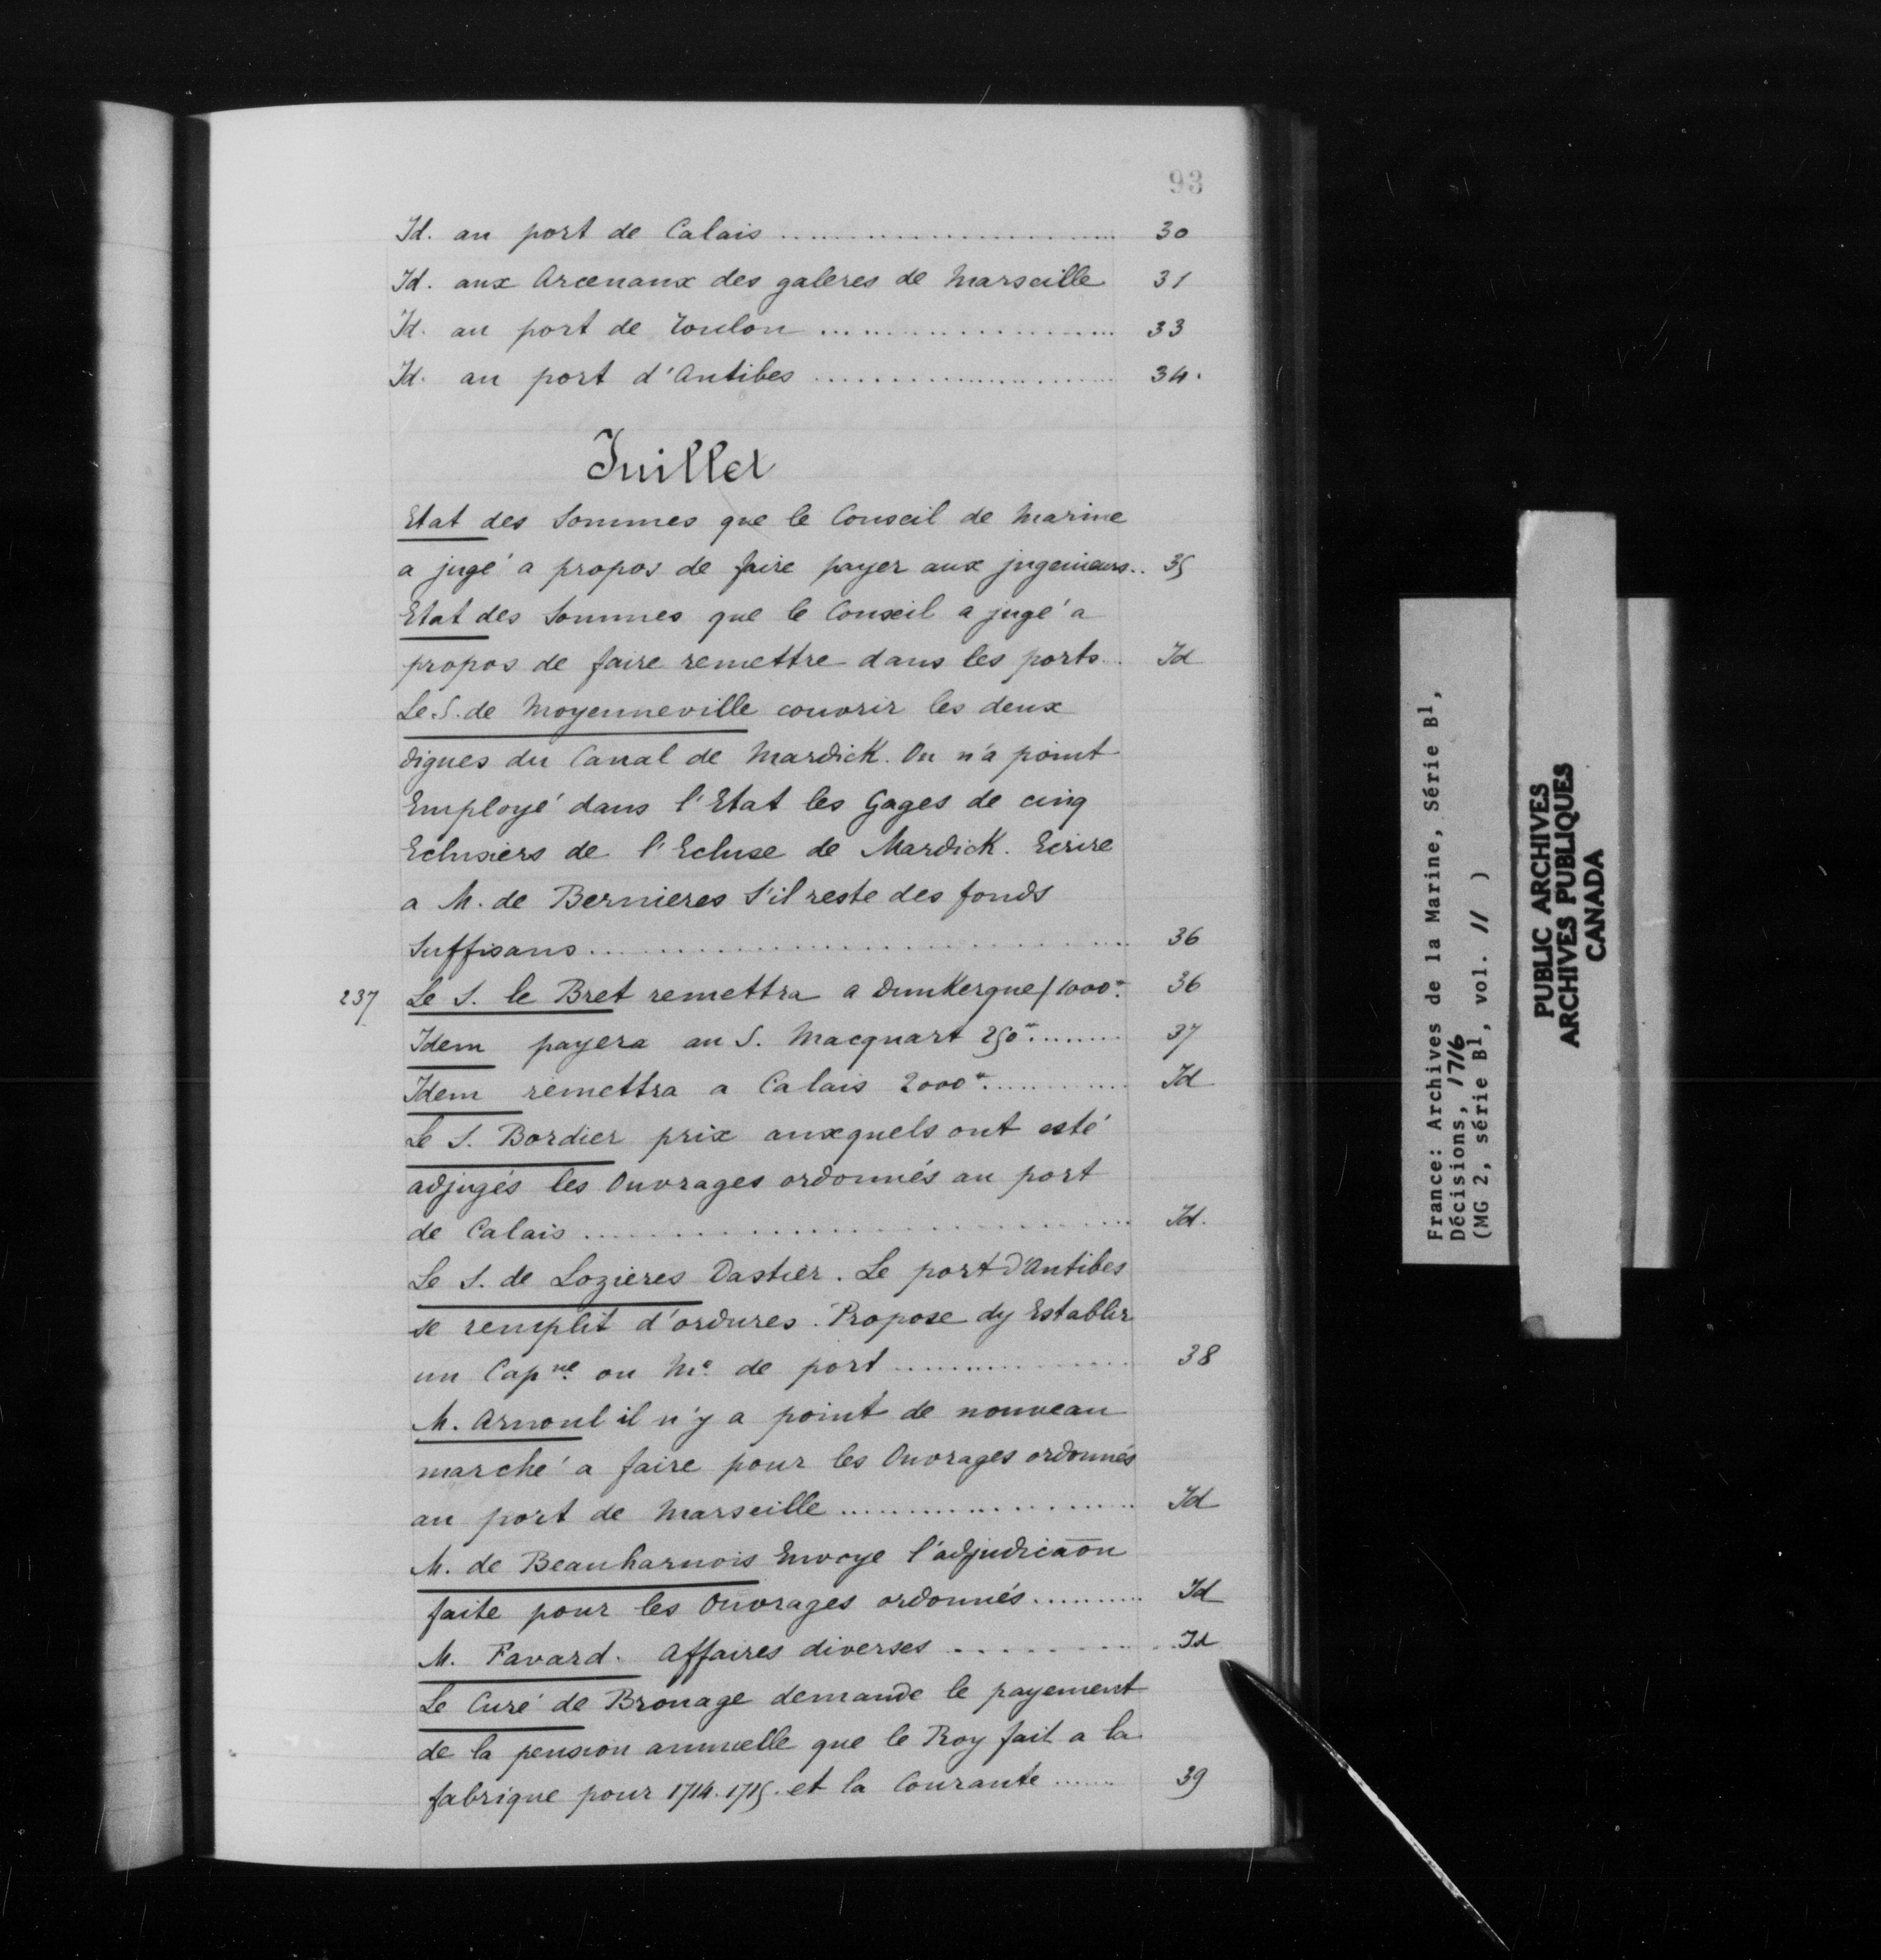 93
Id. au port de Calais ........................ 30
Id. aux Arcenaux des galeres de Marseille 31
Id. au port de Toulon ........................ 33
Id. au port d'Antibes ........................ 34.
Juillet
Etat des Sommes que le Conseil de Marine
a jugé a propos de faire payer aux jngenieurs.. 35
Etat des Sommes que le Conseil a jugé a
propos de faire remettre dans les ports.. Id
Le S. de Moyenneville couvrir les deux
digues du Canal de Mardick. On n'a point
Employé dans l'Etat les Gages de cinq
Eclusiers de l'Ecluse de Mardick. Ecrire
a M. de Bernieres S'il reste des fonds
Suffisans ........................ 36
237 Le S. le Bret remettra a Dunkerque / 1000ʰ. 36
Idem payera au S. Macquart 250ʰ........ 37
Idem remettra a Calais 2000ʰ............ Id
Le S. Bordier prix auxquels ont esté
adjugés les Ouvrages ordonnés au port
de Calais ........................ Id.
Le S. de Lozieres Dastier. Le port d'Antibes
se remplit d'ordures. Propose dy Establir
un Capⁿᵉ ou Mᵉ de port ............ 38
M. Arnoul il n'y a point de nouveau
marché a faire pour les Ouvrages ordonnés
au port de Marseille ............ Id
M. de Beauharnois Envoye l'adjudicaōn
faite pour les Ouvrages ordonnés .......... Id
M. Favard. Affaires diverses .......... Id
Le Curé de Brouage demande le payement
de la pension annuelle que le Roy fait a la
fabrique pour 1714. 1715. et la Courante ...... 39
France: Archives de la Marine, Série B1,
Décisions, 1716
(MG 2, série B1, vol. 11 )
PUBLIC ARCHIVES
ARCHIVES PUBLIQUES
CANADA